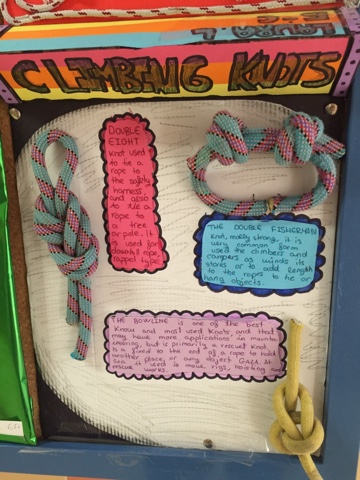 LAURA L
CLIMBING KNOTS
DOUBLE
EIGHT
Knot used
to tie a
rope to
the safety
harness
and also
to tie a
rope to
a tree
or pole. It
is used for
downhill rope,
rappel type
THE DOUBLE FISHERMAN
Knot, really strong, it is
very common form
used the climbers and
campers as winds its
stores or to add length
to the ropes to tie or
hang objects.
THE BOWLING is one of the best
Know and most used Knots and that
may have more applications in mountai
neering, but is primarily a rescue Knot
is a fixed to the end of a rope to hold
another place, or any object
sea it used to make rigs, hoisting and
rescue works